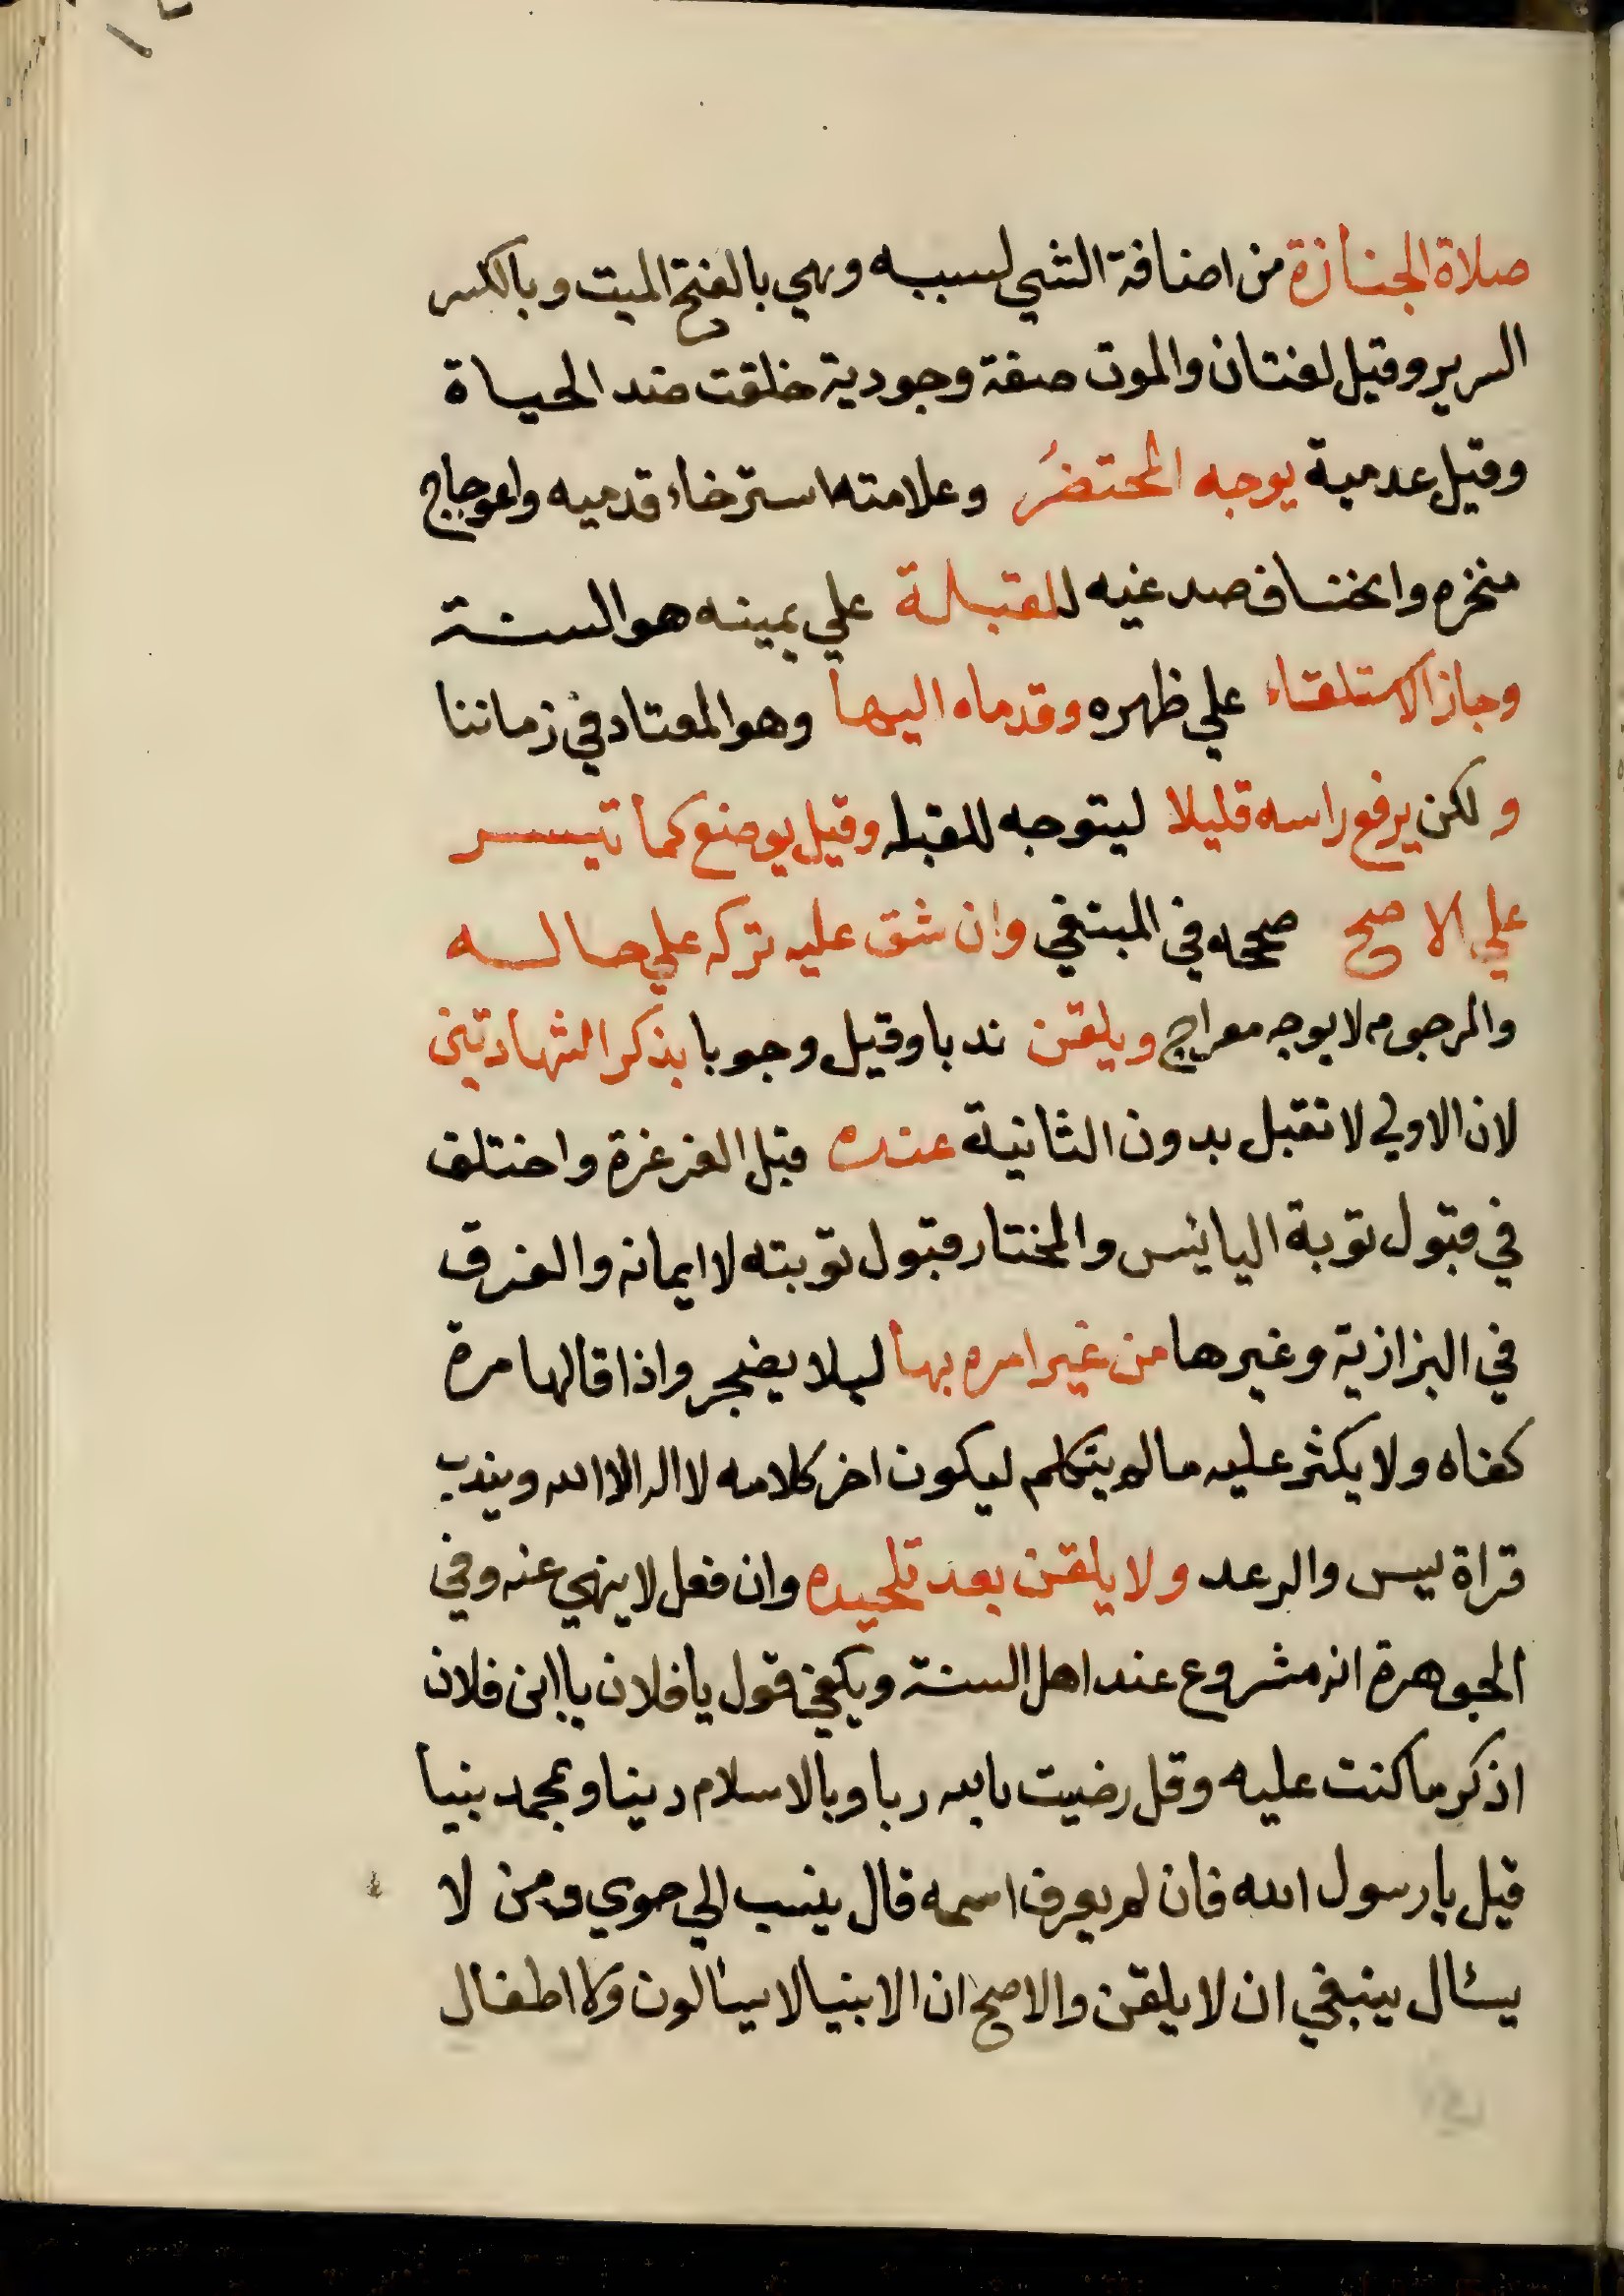 صلاة الجنازة من اضافة الشي لسببه وهي بالفتح الميت وبالكسر
السرير وقيل لغتان والموت صفة وجودية خلقت ضد الحياة
وقيل عدمية يوجه المحتضرُ وعلامته استرخاء قدميه واعوجاج
منخره وانخساف صدغيه للقبلة علي يمينه هو السنة
وجاز الاستلقاء علي ظهره وقدماه اليها وهو المعتاد في زماننا
ولكن يرفع راسه قليلا ليتوجه للقبله وقيل يوضع كما تيسر
علي الاصح صححه في المبتغي وان شق عليه تركه علي حاله
والمرجوم لا يوجه معراج ويلقن ندبا وقيل وجوبا بذكر الشهادتين
لان الاولي لا تقبل بدون الثانية عنده قبل الغرغرة واختلف
في قبول توبة اليائس والمختار قبول توبته لا ايمانه والفرق
في البزازية وغيرها من غير امره بها ليلا يضجر واذا قالها مرة
كفاه ولا يكثر عليه مالم يتكلم ليكون اخر كلامه لا اله الا الله ويندب
قراة يس والرعد ولا يلقن بعد تلحيده وان فعل لا ينهي عنه وفي
الجوهرة انه مشروع عند اهل السنة ويكفي قول يا فلان يا ابن فلان
اذكر ما كنت عليه وقل رضيت بالله ربا وبالاسلام دينا وبمحمد نبيا
قيل يا رسول الله فان لم يعرف اسمه قال ينسب الي حوي ومن لا
يسئال ينبغي ان لا يلقن والاصح ان الانبيا لا يسالون ولا اطفال